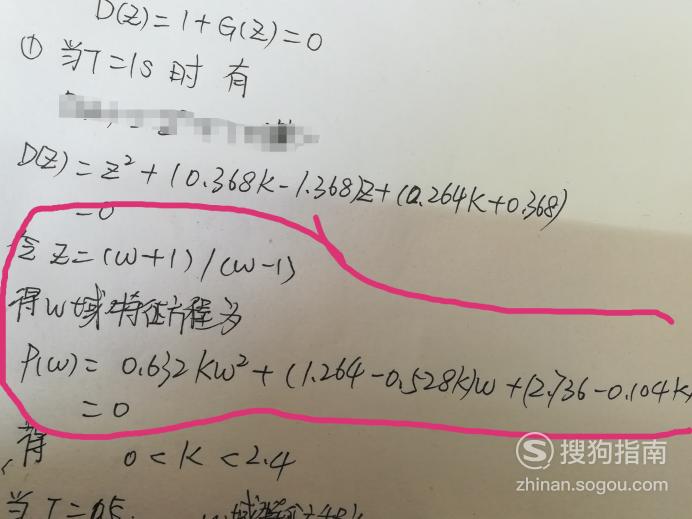 D(Z)=1+G(Z)=0
① 当T=1s 时 有
D(Z)=Z²+(0.368K-1.368)Z+(0.264K+0.368)
=0
令 Z=(W+1)/(W-1)
得W域特征方程为
P(W)= 0.632KW²+(1.264-0.528K)W+(2.736-0.104K)
=0
得 0<K<2.4
当T=0.5
S 搜狗指南
zhinan.sogou.com